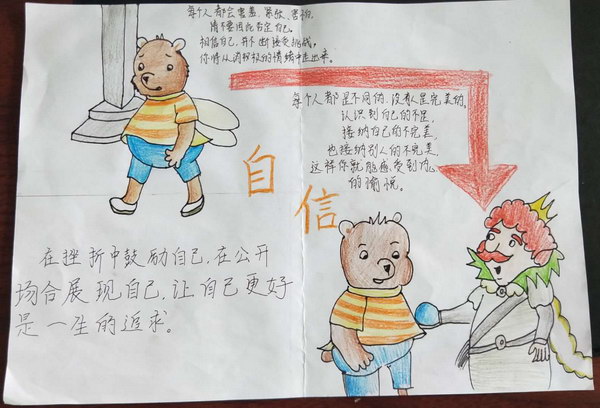 每个人都会害羞、紧张、害怕,
请不要因此否定自己。
相信自己,并不断接受挑战,
你将从消极的情绪中走出来。
每个人都是不同的,没有人是完美的,
认识到自己的不足,
接纳自己的不完美,
也接纳别人的不完美,
这样你就能感受到内心
的愉悦。
自
信
在挫折中鼓励自己,在公开
场合展现自己,让自己更好
是一生的追求。